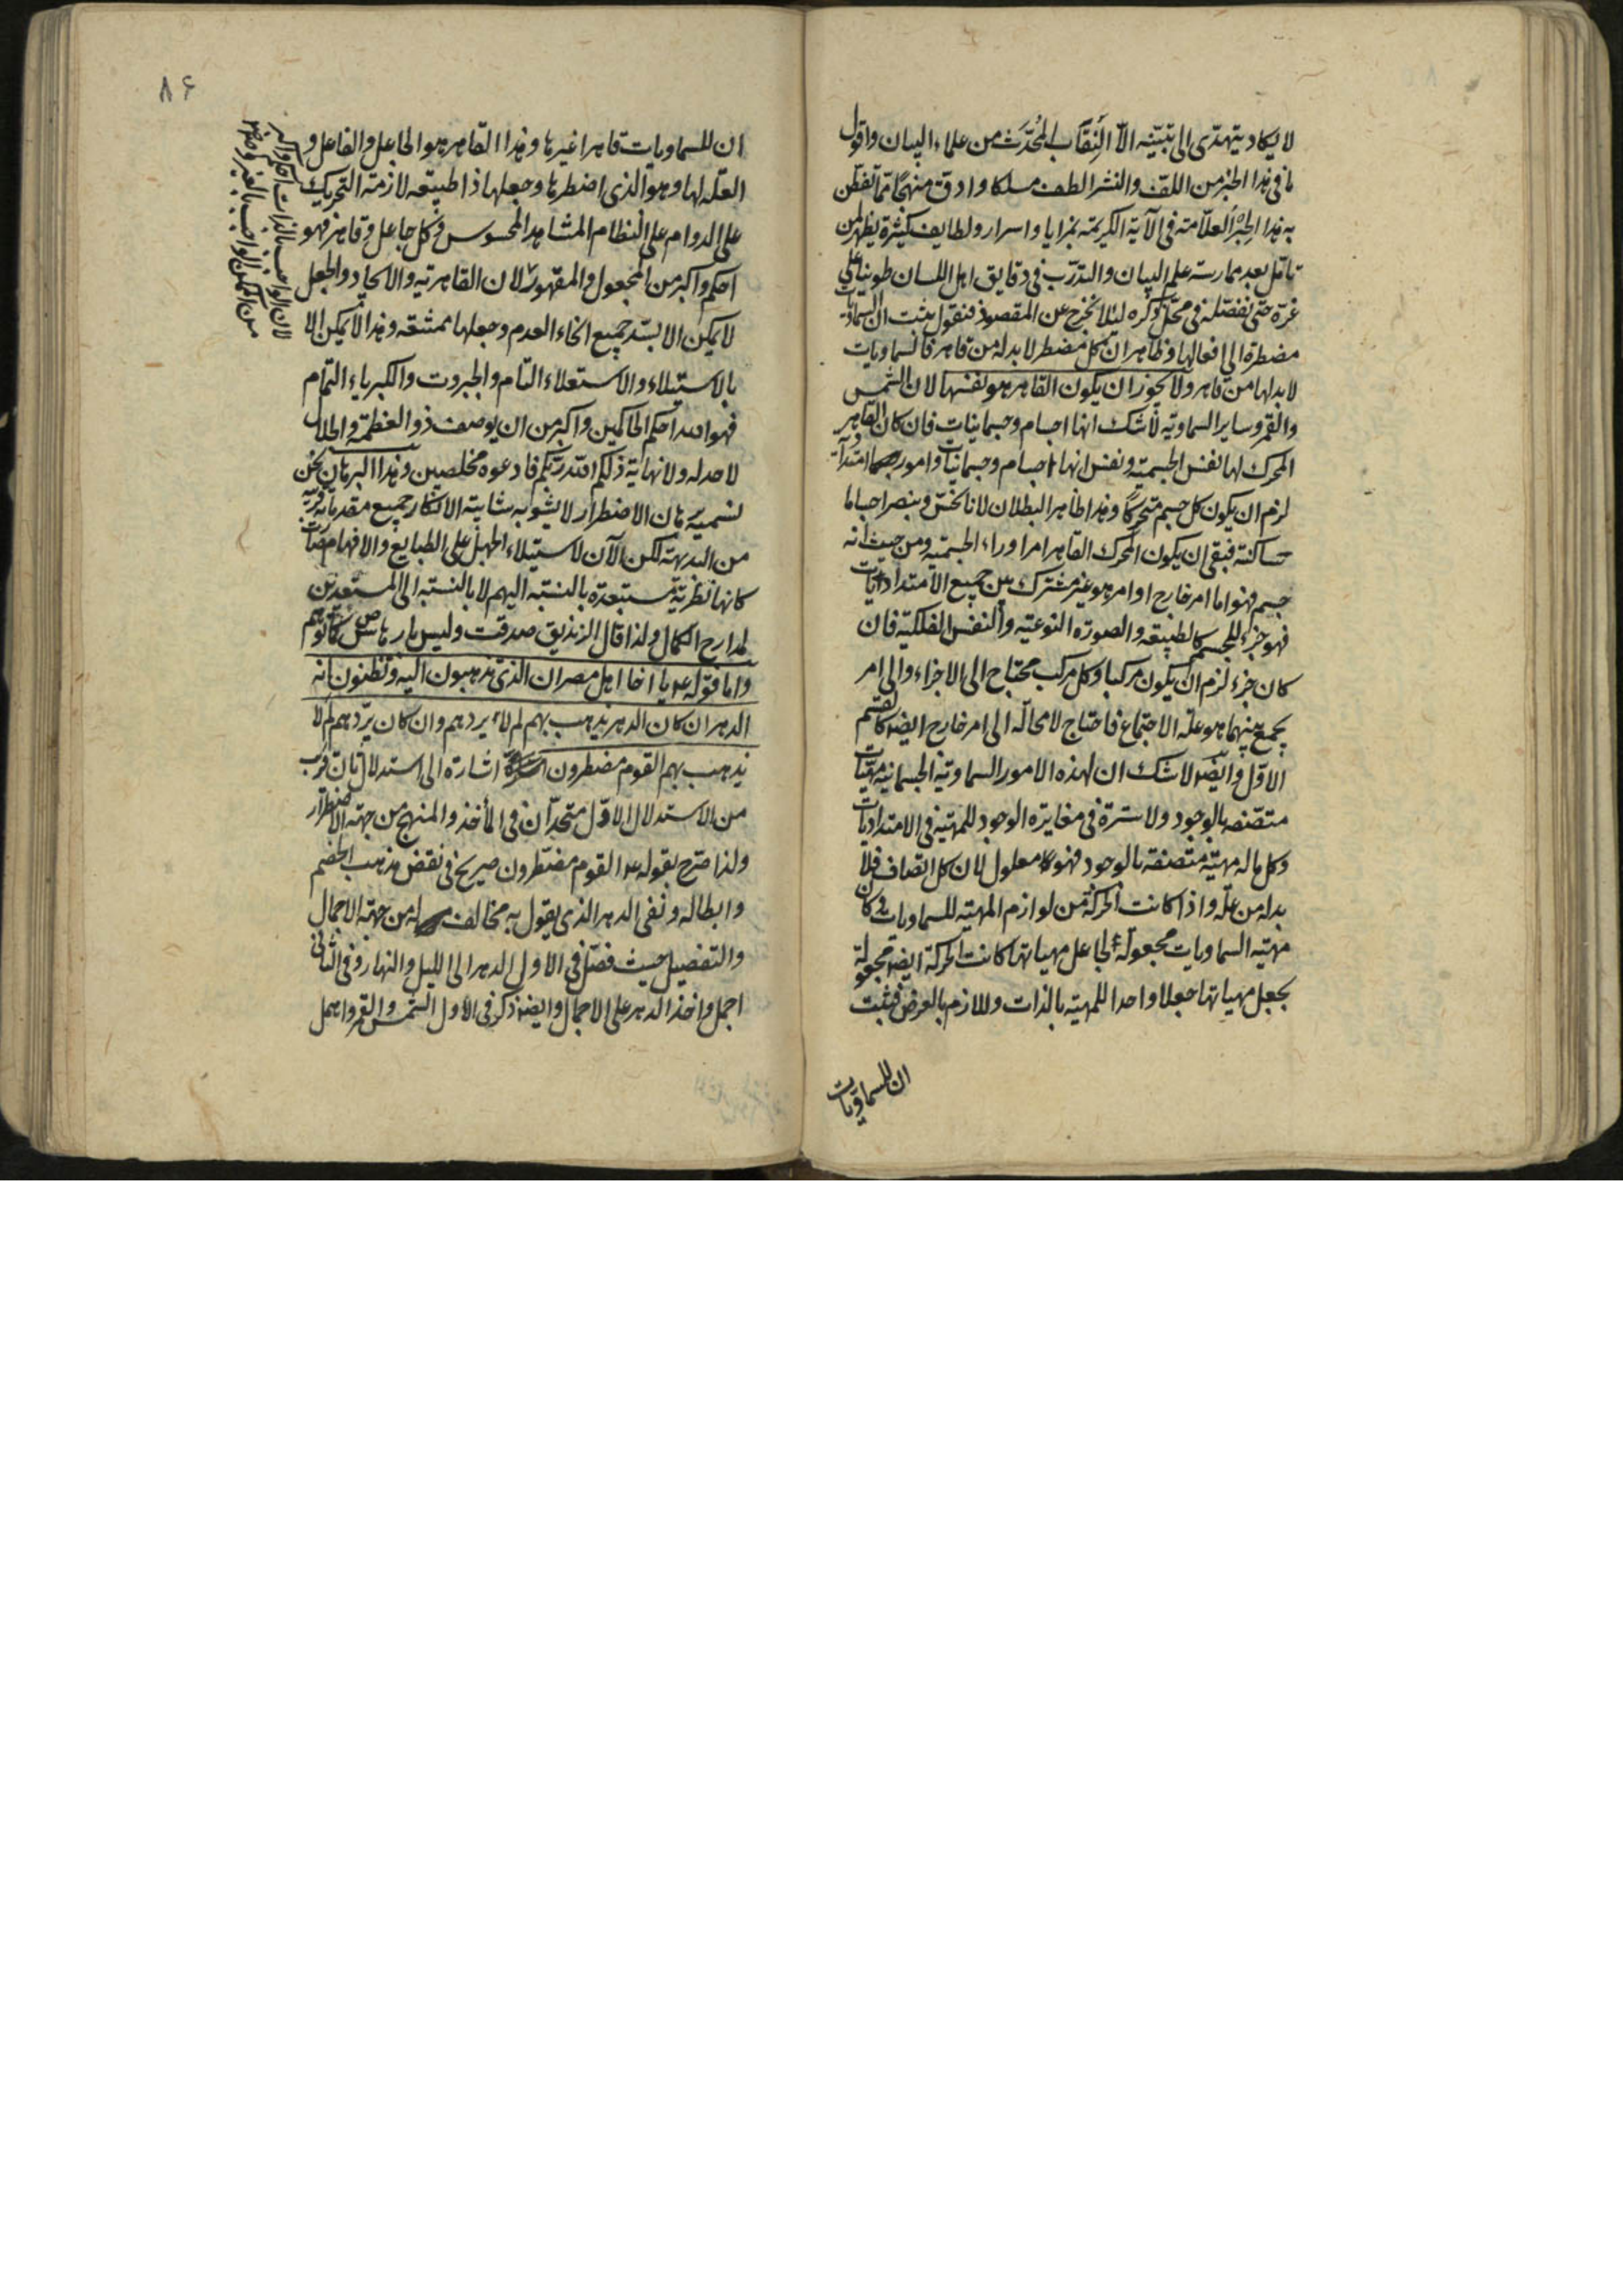 لا يكاد يهتدى الى تبتينه الا النقاب المحدّث من علماء البيان واقول
ما فى هذا الخبر من اللف والنشر الطف مسلكا وادق منهجا مما تفطن
به هذا الحبر العلامة فى الآية الكريمة بمزايا واسرار ولطايف كثيرة يظهر لمن
تامل بعد ممارسة علم البيان والتدرب فى دقايق اهل اللسان طويناه على
غرة حتى نفصله فى محل ذكره لئلا نخرج عن المقصود فنقول ثبت ان السماويات
مضطرة الى افعالها وظاهر ان كل مضطر لا بد له من قاهر فالسماويات
لا بد لها من قاهر ولا يجوز ان يكون القاهر هو نفسها لان الشمس
والقمر وساير السماوية لا شك انها اجسام وجسمانيات فان كان القاهر
المحرك لها نفس الجسمية ونفس انها اجسام وجسمانيات وامور امتدادية
لزم ان يكون كل جسم متحركا وهذا ظاهر البطلان لانا نحس ونبصر اجساما
ساكنة فبقى ان يكون المحرك القاهر امرا وراء الجسمية ومن حيث انه
جسم فهو اما امر خارج او امر هو غير مشترك بين جميع الامتداديات
فهو جزء للجسم كالطبيعة والصورة النوعية والنفس الفلكية فان
كان جزء لزم ان يكون مركبا وكل مركب محتاج الى الاجزاء والى امر
يجمع بينهما هو علة الاجتماع فاحتاج لا محالة الى امر خارج ايضا كالقسم
الاول وايضا لا شك ان لهذه الامور السماوية الجسمانية مهيات
متصفة بالوجود ولا سترة فى مغايرة الوجود للمهية فى الامتداديات
وكل ما له مهية متصفة بالوجود فهو معلول لان كل اتصاف فلا
بد له من علة واذا كانت الحركة من لوازم المهية للسماويات وكان
مهية السماويات مجعولة لجاعل مهياتها كانت الحركة ايضا مجعولة
بجعل مهياتها جعلا واحدا للمهية بالذات وللازم بالعرض فثبت
ان للسماويات
٨۶
ان للسماويات قاهرا غيرها وهذا القاهر هو الجاعل والفاعل و
العلة لها وهو الذى اضطرها وجعلها ذا طبيعة لازمة التحريك
على الدوام على النظام المشاهد المحسوس وكل جاعل وقاهر فهو
احكم واكبر من المجعول والمقهور لان القاهرية والايجاد والجعل
لا يمكن الا بسد جميع انحاء العدم وجعلها ممتنعة وهذا لا يمكن الا
بالاستيلاء والاستعلاء التام والجبروت والكبرياء التمام
فهو الله احكم الحاكمين واكبر من ان يوصف ذو العظمة والجلال
لا حد له ولا نهاية ذلكم الله ربكم فادعوه مخلصين وهذا البرهان نحن
نسميه برهان الاضطرار لا يشوبه شائبة الانكار جميع مقدماته قريبة
من البديهة لكن الآن لاستيلاء الجهل على الطبايع والافهام صارت
كانها نظرية مستبعدة بالنسبة اليهم لا بالنسبة الى المستعدين
لمدارج الكمال ولذا قال الزنديق صدقت وليس كما توهم
واما قوله ع يا اخا اهل مصر ان الذى تذهبون اليه وتظنون انه
الدهر ان كان الدهر يذهب بهم لم لا يردهم وان كان يردهم لم لا
يذهب بهم القوم مضطرون اشارة الى استدلال ثان قريب
من الاستدلال الاول متحدان فى المأخذ والمنهج من جهة الاضطرار
ولذا صرح بقوله ع القوم مضطرون صريح فى نقض مذهب الخصم
وابطاله ونفى الدهر الذى يقول به مخالف له من جهة الاجمال
والتفصيل حيث فصل فى الاول الدهر الى الليل والنهار وفى الثانى
اجمل واخذ الدهر على الاجمال وايضا ذكر فى الاول الشمس والقمر واهمل
لان الواجب بالذات احكم واكبر
من الممكن الواجب بالغير